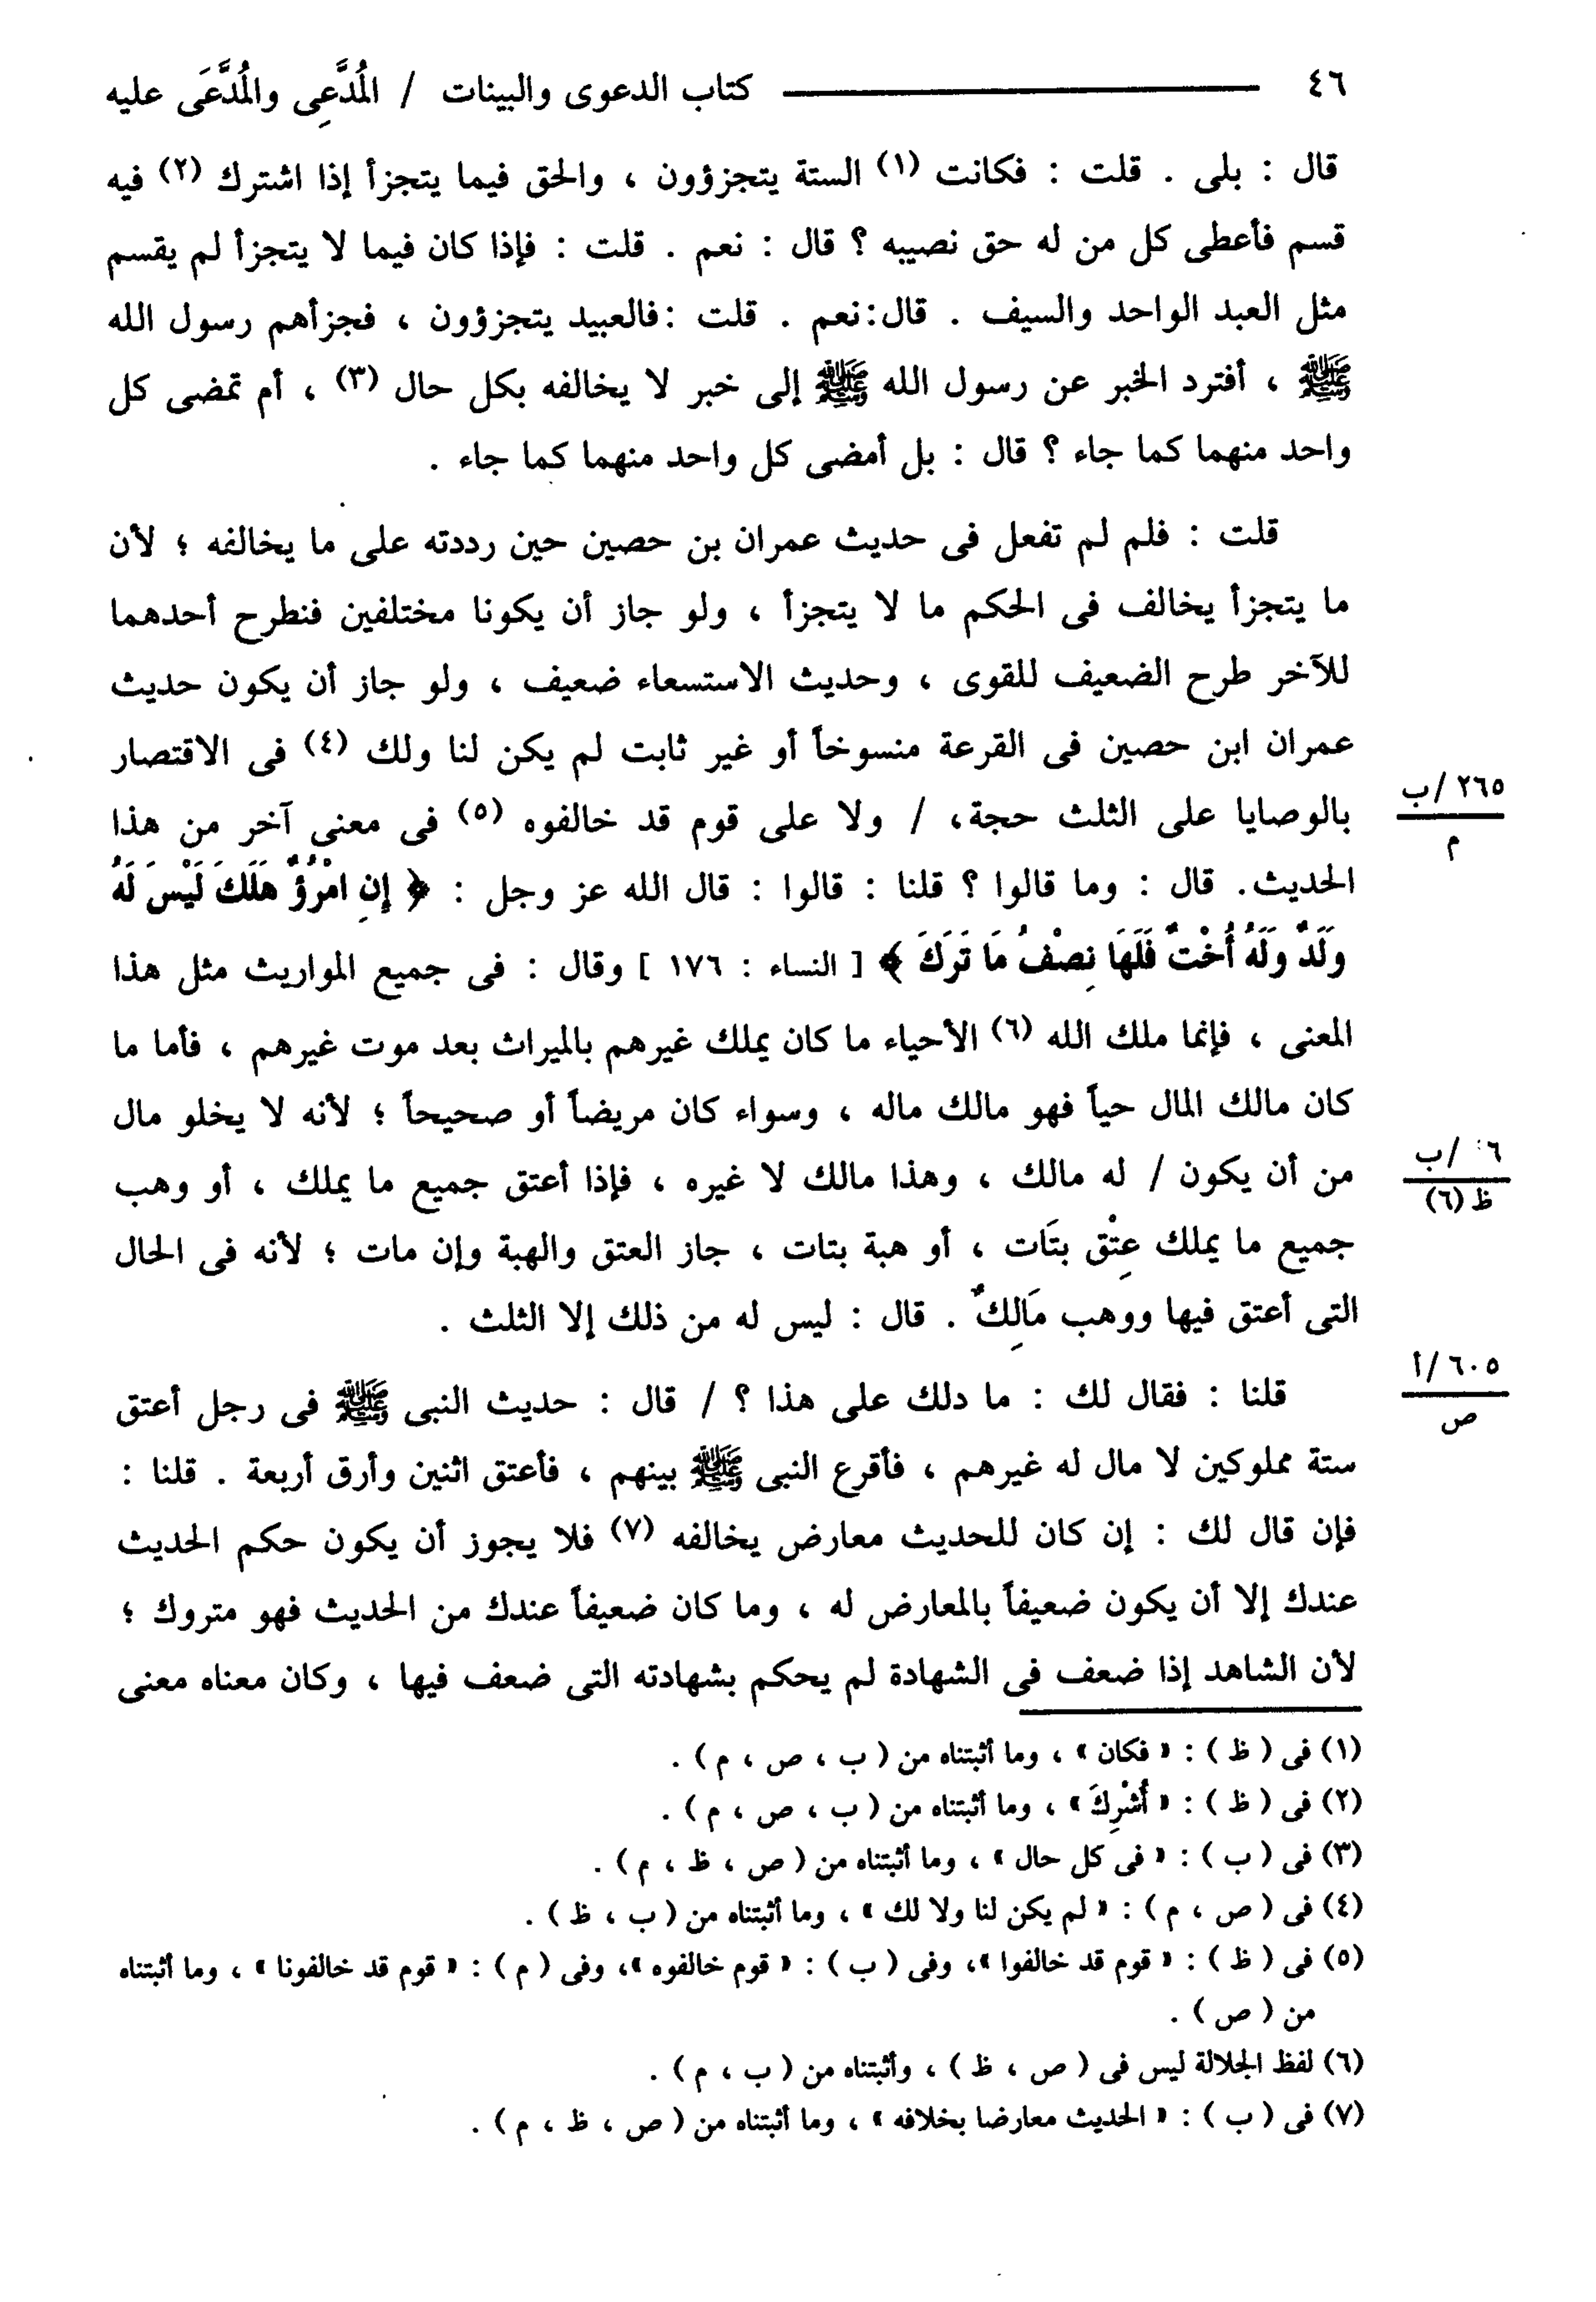 ٤٦ كتاب الدعوى والبينات / المُدَّعِى والمُدَّعَى عليه
قال : بلى . قلت : فكانت (١) الستة يتجزؤون ، والحق فيما يتجزأ إذا اشترك (٢) فيه
قسم فأعطى كل من له حق نصيبه ؟ قال : نعم . قلت : فإذا كان فيما لا يتجزأ لم يقسم
مثل العبد الواحد والسيف . قال:نعم . قلت :فالعبيد يتجزؤون ، فجزأهم رسول الله
ﷺ ، أفترد الخبر عن رسول الله ﷺ إلى خبر لا يخالفه بكل حال (٣) ، أم تمضى كل
واحد منهما كما جاء ؟ قال : بل أمضى كل واحد منهما كما جاء .
قلت : فلم لم تفعل فى حديث عمران بن حصين حين رددته على ما يخالفه ؛ لأن
ما يتجزأ يخالف فى الحكم ما لا يتجزأ ، ولو جاز أن يكونا مختلفين فنطرح أحدهما
للآخر طرح الضعيف للقوى ، وحديث الاستسعاء ضعيف ، ولو جاز أن يكون حديث
عمران ابن حصين فى القرعة منسوخاً أو غير ثابت لم يكن لنا ولك (٤) فى الاقتصار
بالوصايا على الثلث حجة، / ولا على قوم قد خالفوه (٥) فى معنى آخر من هذا
٢٦٥ /ب
م
الحديث. قال : وما قالوا ؟ قلنا : قالوا : قال الله عز وجل : ﴿ إِنِ امْرُؤٌ هَلَكَ لَيْسَ لَهُ
وَلَدٌ وَلَهُ أُخْتٌ فَلَهَا نِصْفُ مَا تَرَكَ ﴾ [ النساء : ١٧٦ ] وقال : فى جميع المواريث مثل هذا
المعنى ، فإنما ملك الله (٦) الأحياء ما كان يملك غيرهم بالميراث بعد موت غيرهم ، فأما ما
كان مالك المال حياً فهو مالك ماله ، وسواء كان مريضاً أو صحيحاً ؛ لأنه لا يخلو مال
من أن يكون / له مالك ، وهذا مالك لا غيره ، فإذا أعتق جميع ما يملك ، أو وهب
٦ /ب
ظ (٦)
جميع ما يملك عِتْق بتَات ، أو هبة بتات ، جاز العتق والهبة وإن مات ؛ لأنه فى الحال
التى أعتق فيها ووهب مَالِكٌ . قال : ليس له من ذلك إلا الثلث .
قلنا : فقال لك : ما دلك على هذا ؟ / قال : حديث النبى ﷺ فى رجل أعتق
٦٠٥ /أ
ص
ستة مملوكين لا مال له غيرهم ، فأقرع النبى ﷺ بينهم ، فأعتق اثنين وأرق أربعة . قلنا :
فإن قال لك : إن كان للحديث معارض يخالفه (٧) فلا يجوز أن يكون حكم الحديث
عندك إلا أن يكون ضعيفاً بالمعارض له ، وما كان ضعيفاً عندك من الحديث فهو متروك ؛
لأن الشاهد إذا ضعف فى الشهادة لم يحكم بشهادته التى ضعف فيها ، وكان معناه معنى
(١) فى ( ظ ) : « فكان » ، وما أثبتناه من ( ب ، ص ، م ) .
(٢) فى ( ظ ) : « أُشْرِكَ » ، وما أثبتناه من ( ب ، ص ، م ) .
(٣) فى ( ب ) : « فى كل حال » ، وما أثبتناه من ( ص ، ظ ، م ) .
(٤) فى ( ص ، م ) : « لم يكن لنا ولا لك » ، وما أثبتناه من ( ب ، ظ ) .
(٥) فى ( ظ ) : « قوم قد خالفوا »، وفى ( ب ) : « قوم خالفوه »، وفى ( م ) : « قوم قد خالفونا » ، وما أثبتناه
من ( ص ) .
(٦) لفظ الجلالة ليس فى ( ص ، ظ ) ، وأثبتناه من ( ب ، م ) .
(٧) فى ( ب ) : « الحديث معارضا بخلافه » ، وما أثبتناه من ( ص ، ظ ، م ) .